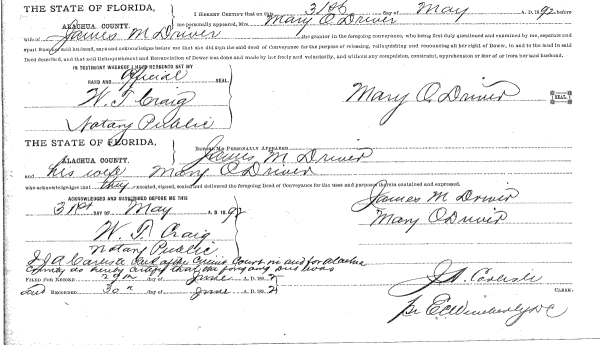 THE STATE OF FLORIDA, I HEREBY CERTIFY that on this 31st day of May A. D. 1892 before
ALACHUA COUNTY. me personally appeared, Mrs. Mary O Driver
wife of James M Driver the grantor in the foregoing conveyance, who being first duly questioned and examined by me, separate and
apart from her said husband, says and acknowledges before me that she did sign the said deed of Conveyance for the purpose of releasing, relinquishing and renouncing all her right of Dower, in and to the land in said
Deed described, and that said Relinquishment and Renunciation of Dower was done and made by her freely and voluntarily, and without any compulsion, constraint, apprehension or fear of or from her said husband.
IN TESTIMONY WHEREOF I HAVE HEREUNTO SET MY
HAND AND Official SEAL.
W. T. Craig Mary O. Driver SEAL.
Notary Public
THE STATE OF FLORIDA, BEFORE ME PERSONALLY APPEARED James M Driver
ALACHUA COUNTY.
and his wife Mary O Driver
who acknowledges that they executed, signed, sealed and delivered the foregoing Deed of Conveyance for the uses and purposes therein contained and expressed.
ACKNOWLEDGED AND SUBSCRIBED BEFORE ME THIS James M Driver
31st DAY OF May A. D. 1892 Mary O Driver
W. T. Craig
Notary Public
I J A Carlisle Clerk of the Circuit Court in and for Alachua
County do hereby certify that the foregoing deed was
FILED FOR RECORD 29th day of June A. D. 1892
and RECORDED 30th day of June A. D. 1892 J A. Carlisle CLERK.
pr E C Wimberly DC